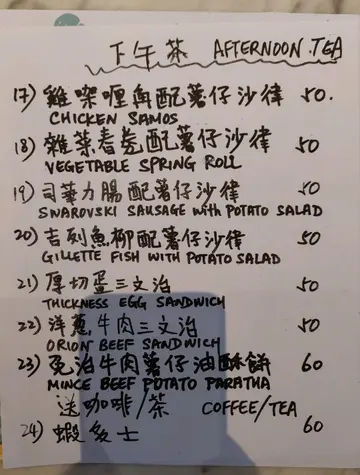 下午茶 AFTERNOON TEA
17) 雞咖喱角配薯仔沙律 50.
CHICKEN SAMOS
18) 雜菜春卷配薯仔沙律 50
VEGETABLE SPRING ROLL
19) 司華力腸配薯仔沙律 50
SWAROVSKI SAUSAGE with POTATO SALAD
20) 吉列魚柳配薯仔沙律 50
GILLETTE FISH WITH POTATO SALAD
21) 厚切蛋三文治 50
THICKNESS EGG SANDWICH
22) 洋葱牛肉三文治 50
ORION BEEF SANDWICH
23) 免治牛肉薯仔油酥餅 60
MINCE BEEF POTATO PARATHA
送咖啡/茶 COFFEE/TEA
24) 蝦多士 60